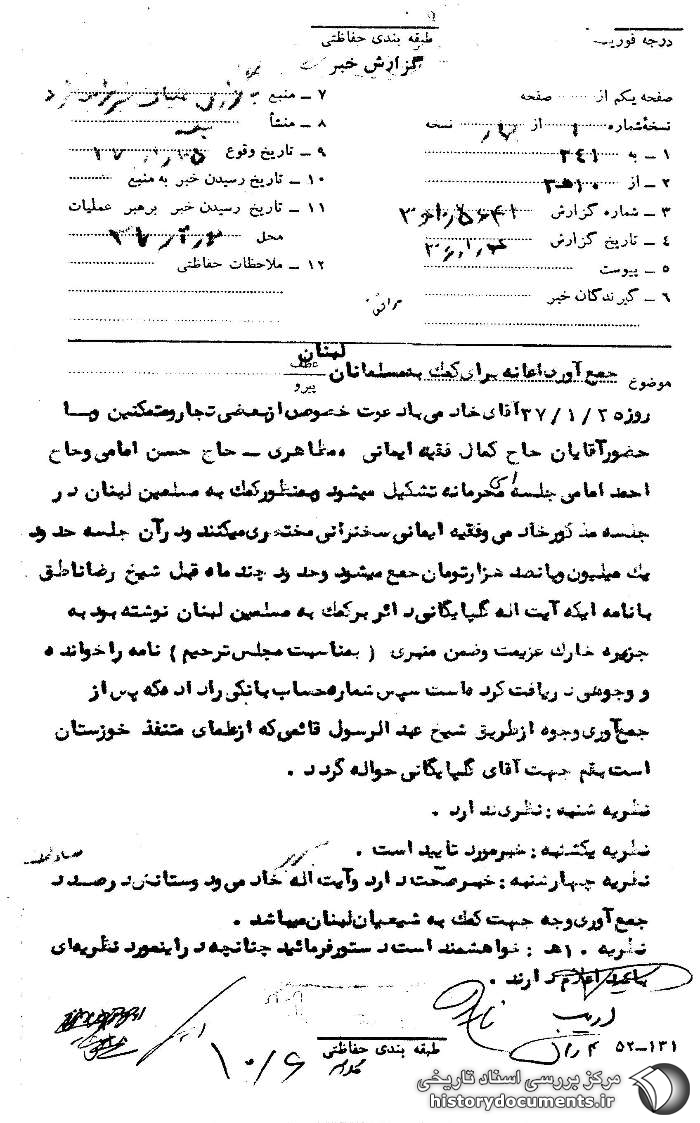 درجه فوریت
طبقه بندی حفاظتی
گزارش خبر
صفحه یکم از صفحه
نسخهٔ شماره ۱ از نسخه
۱ ـ به ۳۴۱
۲ ـ از ۱۰هـ۳
۳ ـ شماره گزارش
۴ ـ تاریخ گزارش
۵ ـ پیوست
۶ ـ گیرندگان خبر
۷ ـ منبع
۸ ـ منشأ
۹ ـ تاریخ وقوع
۱۰ ـ تاریخ رسیدن خبر به منبع
۱۱ ـ تاریخ رسیدن خبر برهبر عملیات
محل
۱۲ ـ ملاحظات حفاظتی
موضوع جمع آوری اعانه برای کمك به مسلمانان لبنان
عطف
پیرو
روز ۳۷/۱/۲۵ آقای خادمی با دعوت خصوصی از بعضی تجار و متمکنین و با
حضور آقایان حاج کمال فقیه ایمانی ، مظاهری ـ حاج حسن امامی و حاج
احمد امامی جلسه ای محرمانه تشکیل میشود و بمنظور کمك به مسلمین لبنان در
جلسه مذکور خادمی و فقیه ایمانی سخنرانی مختصری میکنند و در آن جلسه حدود
یك میلیون و پانصد هزار تومان جمع میشود و حدود چند ماه قبل شیخ رضا ناطق
با نامه ایکه آیت اله گلپایگانی دائر بر کمك به مسلمین لبنان نوشته بود به
جزیره خارك عزیمت و ضمن منبری ( بمناسبت مجلس ترحیم ) نامه را خوانده
و وجوهی دریافت کرده است سپس شماره حساب بانکی را داده که پس از
جمع آوری وجوه از طریق شیخ عبد الرسول قائمی که از علمای متنفذ خوزستان
است بقم جهت آقای گلپایگانی حواله گردد .
نظریه شنبه : نظری ندارد .
نظریه یکشنبه : خبر مورد تایید است .
نظریه چهارشنبه : خبر صحت دارد و آیت اله خادمی و دوستانش در صدد
جمع آوری وجه جهت کمك به شیعیان لبنان میباشد .
نظریه ۱۰هـ : خواهشمند است دستور فرمائید چنانچه در اینمورد نظریه ای
باشد اعلام دارند .
ادیب
طبقه بندی حفاظتی
۵۲-۱۳۱
۱۰/۶
مرکز بررسی اسناد تاریخی
historydocuments.ir